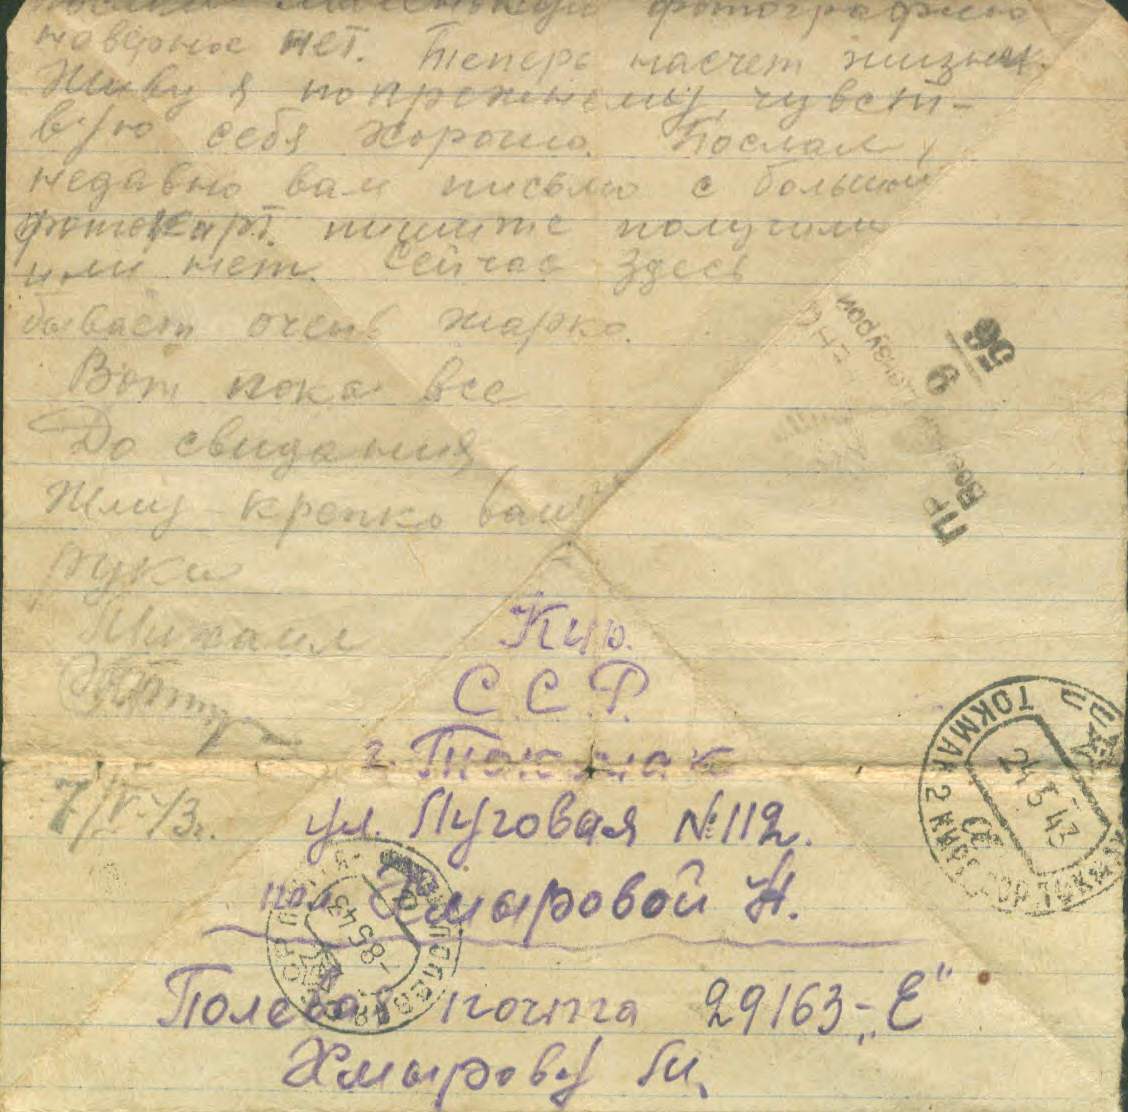 маленькую фотографию
наверное нет. Теперь насчет жизни.
Живу я попрежнему, чувст-
вую себя хорошо. Послал
недавно вам письмо с большой
фотокарт. пишите получили
или нет. Сейчас здесь
бывает очень жарко.
Вот пока все
До свидания
Жму крепко ваши
руки
Михаил
7/V-43г.
Кир.
С.С.Р.
г. Токмак
ул. Луговая №112.
пол. Хмыровой Н.
Полевая почта 29163-„Е"
Хмырову М.
56
9
ПР
ТОКМАК
24 5 43
-8 5 43
ПОЛЕВАЯ